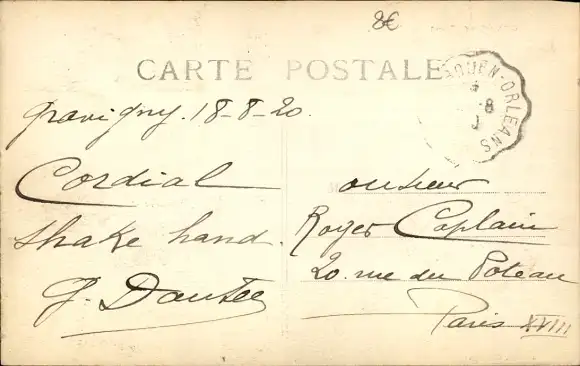 8€
CARTE POSTALE
ROUEN-ORLEANS
8
Gravigny. 18-8-20.
Cordial
shake hand.
G. Dautée
Monsieur
Roger Caplain
20. rue du Poteau
Paris XVIII